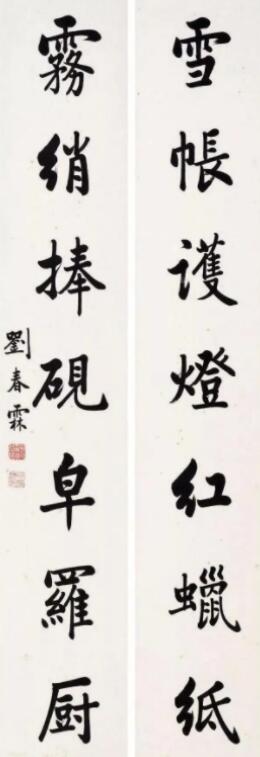 雪帳護燈紅蠟紙
霧綃捧硯皁羅厨
劉春霖